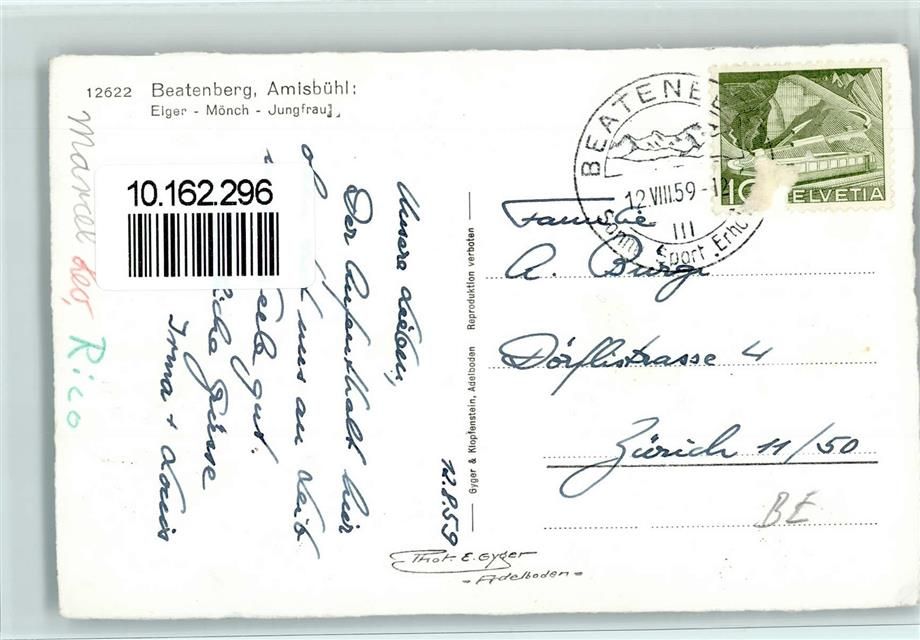 12622 Beatenberg, Amisbühl:
Eiger - Mönch - Jungfrau
10.162.296
12.8.59
Unsere Lieben,
Der Aufenthalt hier
uns an Leib
Seele gut.
Grüsse
Irma + Louis
Marcel Leo Rico
Gyger & Klopfenstein, Adelboden Reproduktion verboten
Phot. E. Gyger
- Adelboden -
BEATENBE
12.VIII.59-12
III
Sonne Sport Erho
10 HELVETIA
Familie
A. Bürgi
Dörflistrasse 4
Zürich 11/50
BE